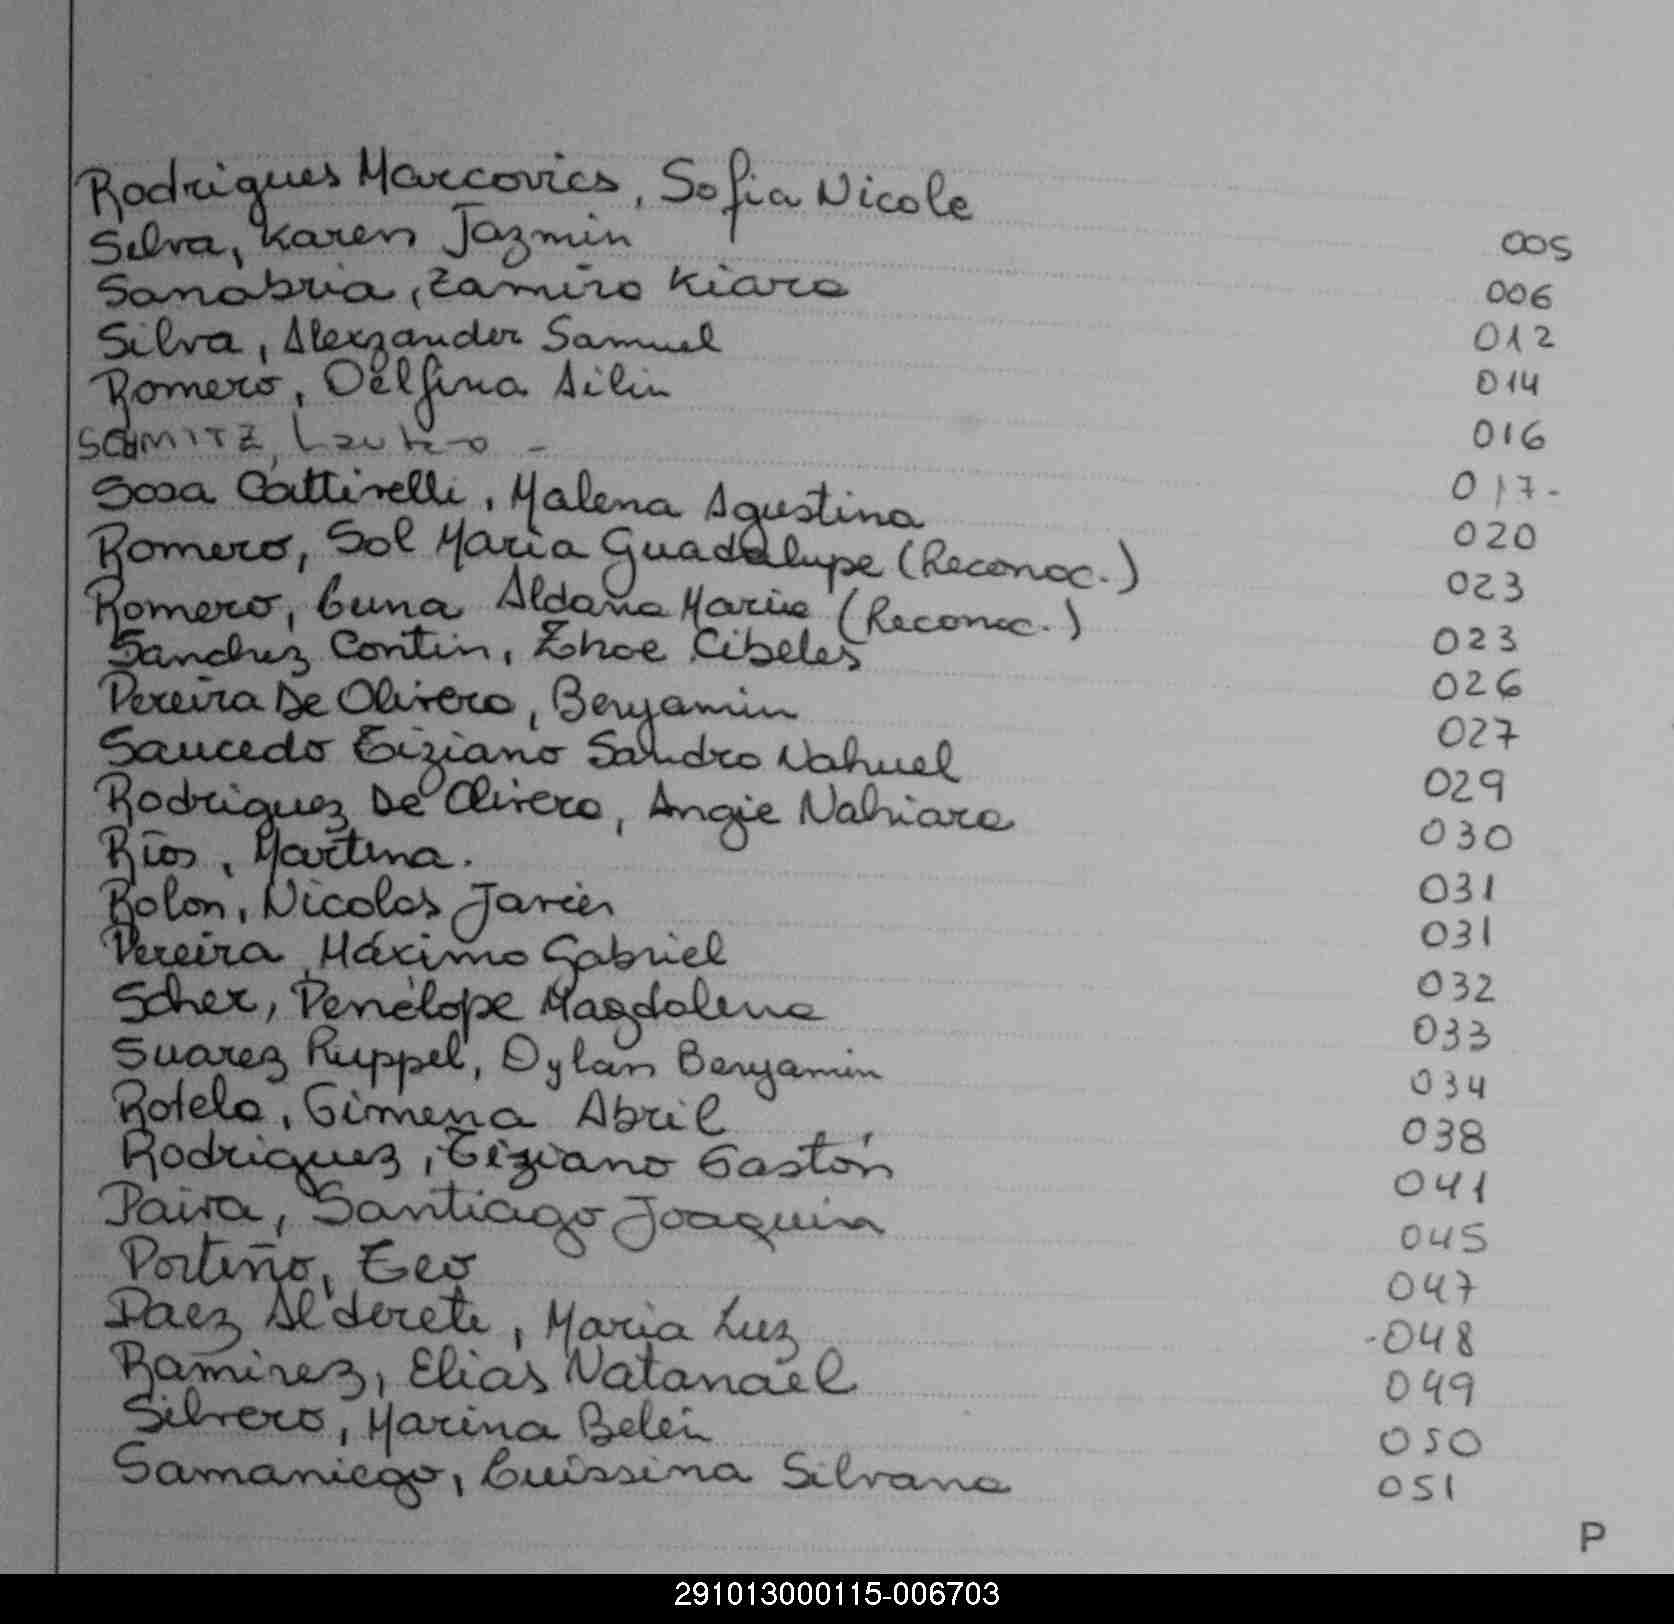 Rodrigues Marcovics, Sofia Nicole 005
Silva, Karen Jazmin 006
Sanabria, Zamira Kiara 012
Silva, Alexzander Samuel 014
Romero, Delfina Ailin 016
SCHMITZ, Lautaro - 017-
Sosa Cattinelli, Malena Agustina 020
Romero, Sol Maria Guadalupe (Reconoc.) 023
Romero, Luna Aldana Maria (Reconoc.) 023
Sanchez Contin, Zhoe Cibeles 026
Pereira De Olivera, Benjamin 027
Saucedo Tiziano Sandro Nahuel 029
Rodriguez De Olivera, Angie Nahiara 030
Ríos, Martina. 031
Rolon, Nicolas Javier 031
Pereira, Máximo Gabriel 032
Scher, Penélope Magdalena 033
Suarez Ruppel, Dylan Benjamin 034
Rotela, Gimena Abril 038
Rodriguez, Tiziano Gastón 041
Paiva, Santiago Joaquin 045
Porteño, Teo 047
Paez Alderete, Maria Luz -048
Ramirez, Elias Natanael 049
Silvero, Marina Belén 050
Samaniego, Luissina Silvana 051
P
291013000115-006703